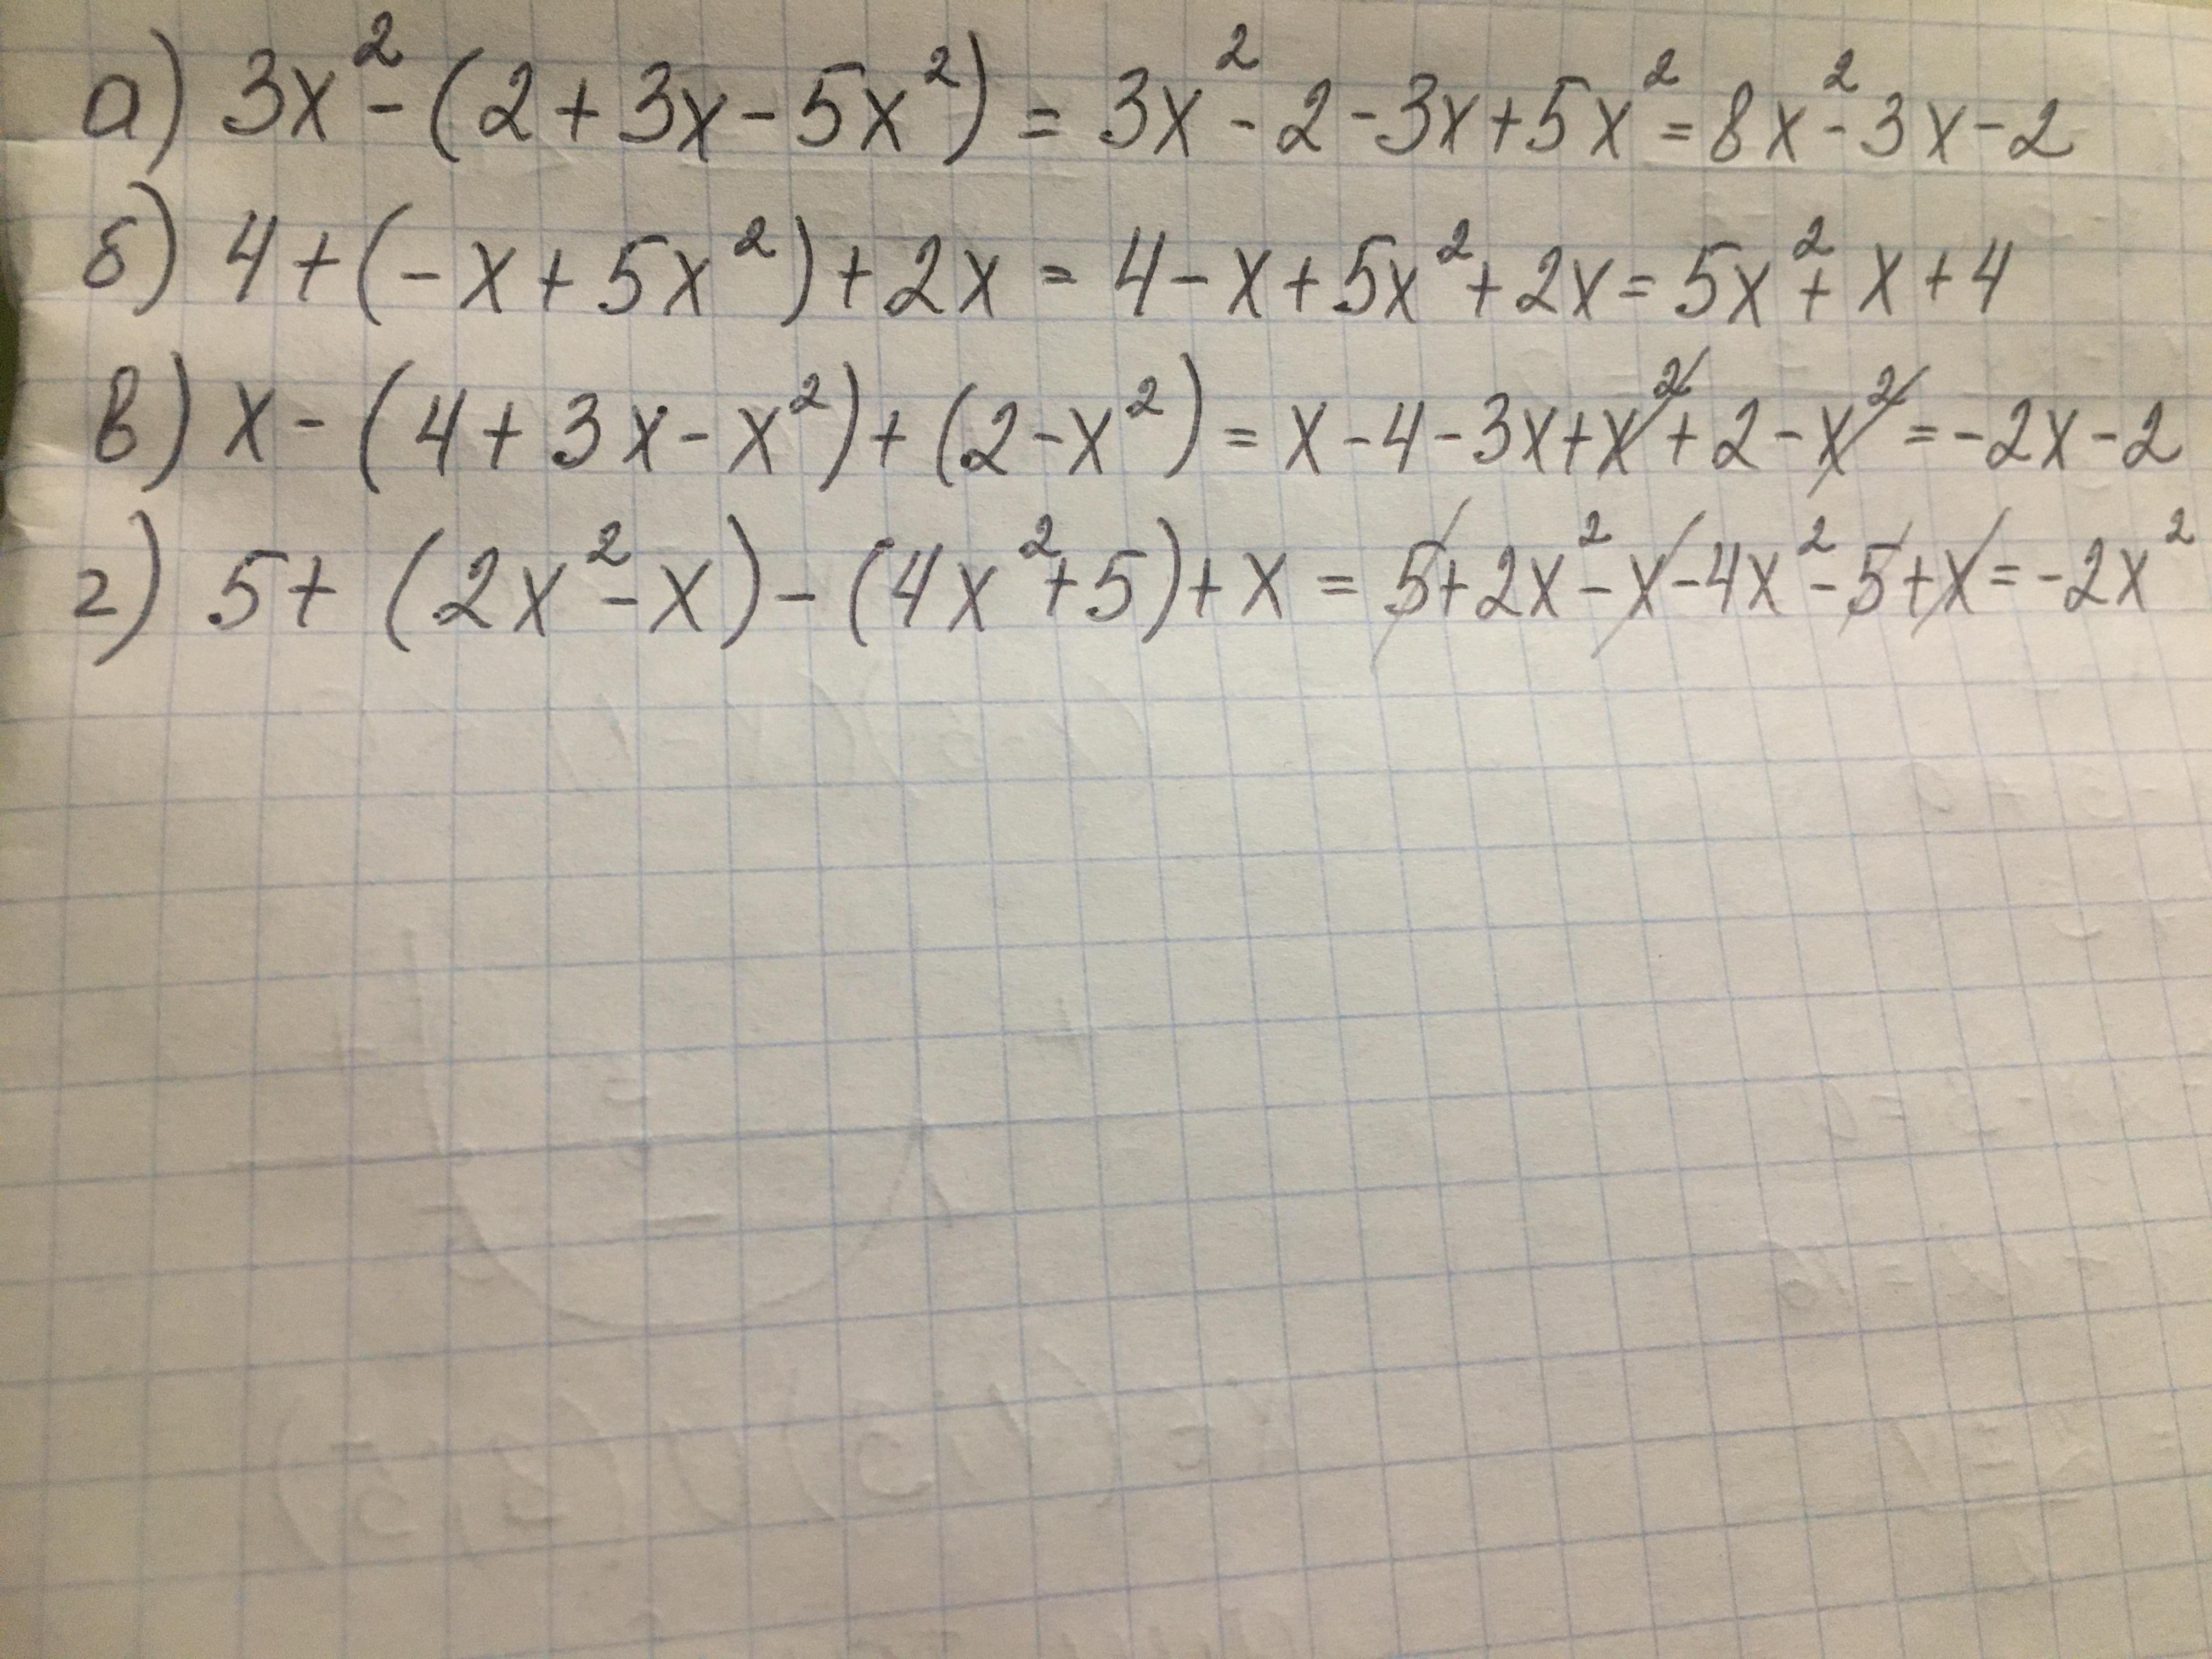 а) 3x² - (2 + 3x - 5x²) = 3x² - 2 - 3x + 5x² = 8x² - 3x - 2
б) 4 + (- x + 5x²) + 2x = 4 - x + 5x² + 2x = 5x² + x + 4
в) x - (4 + 3x - x²) + (2 - x²) = x - 4 - 3x + x² + 2 - x² = -2x - 2
г) 5 + (2x² - x) - (4x² + 5) + x = 5 + 2x² - x - 4x² - 5 + x = -2x²